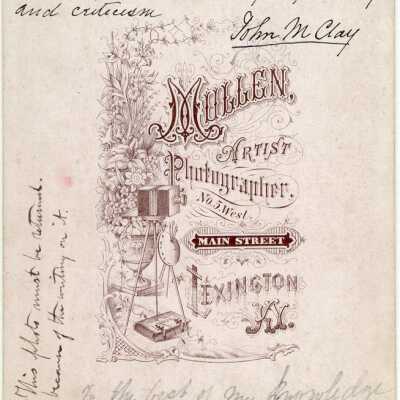 and criticism
John M Clay
MULLEN,
ARTIST
Photographer.
No. 5. West.
MAIN STREET
LEXINGTON
KY.
This photo must be returned.
because of the writing on it.
To the best of my knowledge